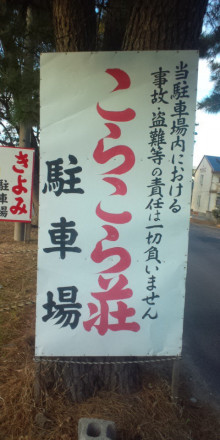 当駐車場内における
事故・盗難等の責任は一切負いません
こらこら荘
駐車場
きよみ
駐車場